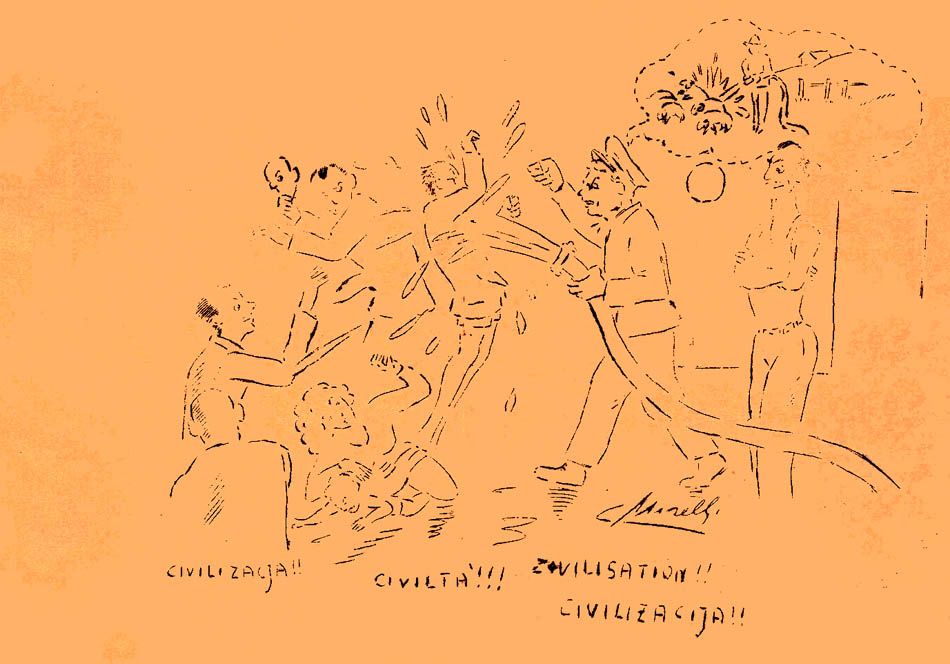 CIVILIZACJA!!
CIVILTA'!!!
ZIVILISATION!!
CIVILIZACIJA!!